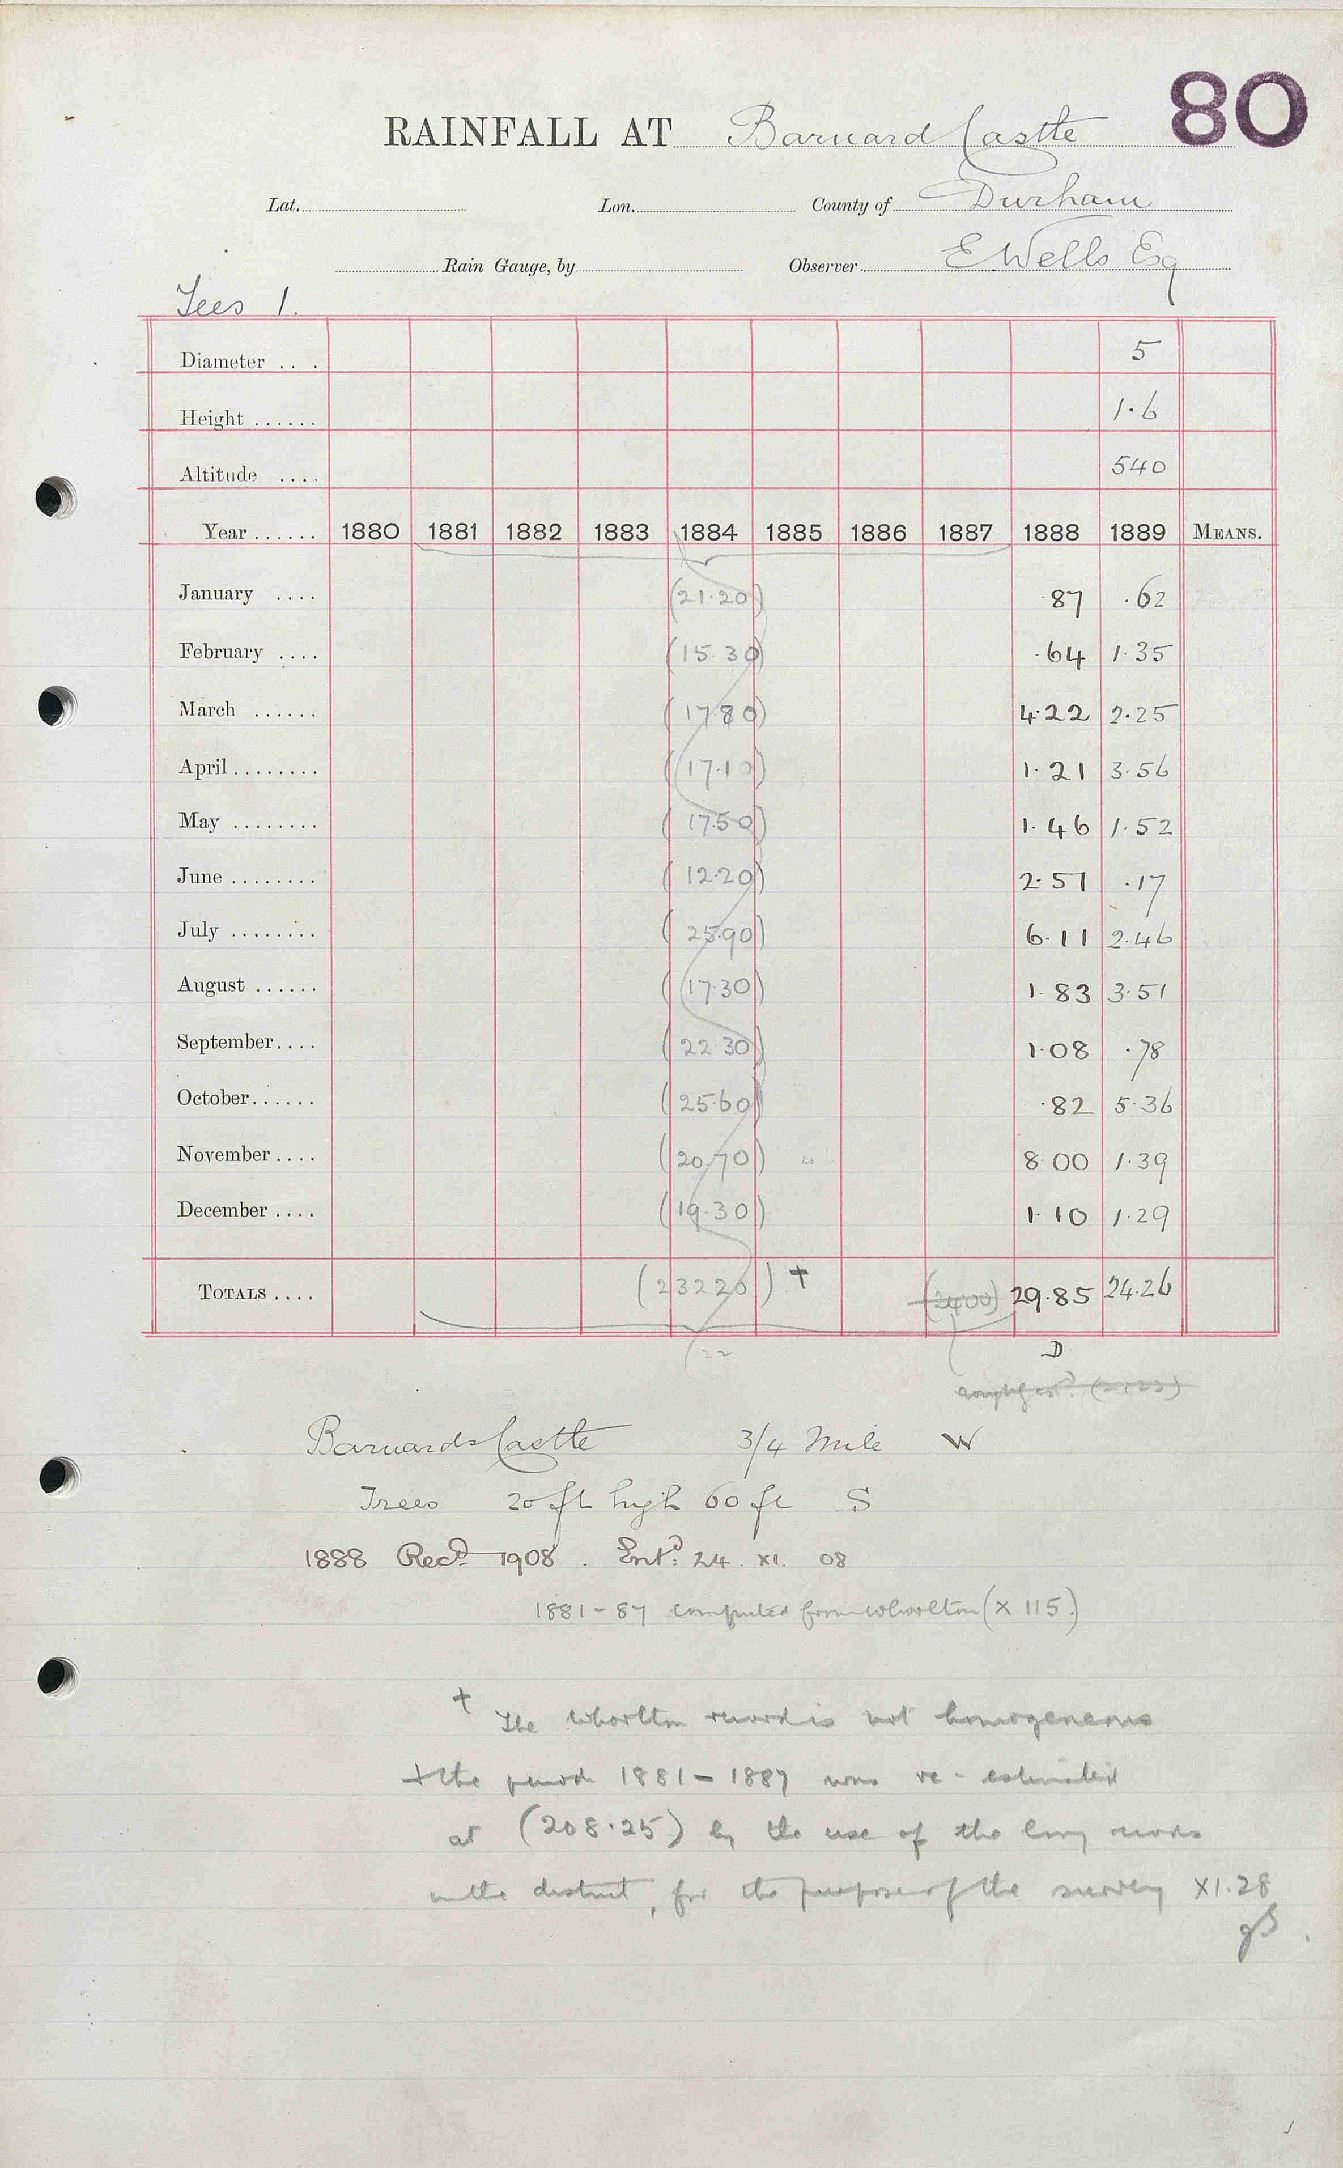 80
RAINFALL AT Barnard Castle
Lat. Lon. County of Durham
Rain Gauge, by Observer E Wells Esq
Tees 1.
Diameter .... 5
Height ...... 1.6
Altitude .... 540
Year ...... 1880 1881 1882 1883 1884 1885 1886 1887 1888 1889 MEANS.
January .... (21.20) .87 .62
February .... (15.30) .64 1.35
March ...... (17.80) 4.22 2.25
April ........ (17.10) 1.21 3.56
May ........ (17.50) 1.46 1.52
June ........ (12.20) 2.51 .17
July ........ (25.90) 6.11 2.46
August ...... (17.30) 1.83 3.51
September.... (22.30) 1.08 .78
October...... (25.60) .82 5.36
November.... (20.70) 8.00 1.39
December .... (19.30) 1.10 1.29
TOTALS .... (232.20) † (24.00) 29.85 24.26
(22 D
Barnard Castle 3/4 Mile W
Trees 20 ft high 60 ft S
1888 Recd. 1908. Entd: 24. XI. 08
1881-87 computed from Whorlton (x 115)
† The Whorlton record is not homogeneous
+ the period 1881-1887 was re-estimated
at (208.25) by the use of the long records
in the district, for the purpose of the survey XI.28